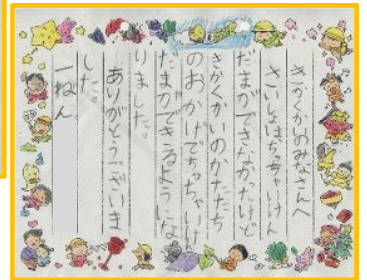 きかくかいのみなさんへ
さいしょはちっちゃいけん
だまができなかったけど
きかくかいのかたたち
のおかげでちっちゃいけん
だまができるようにな
りました。
ありがとうございま
した。
一ねん